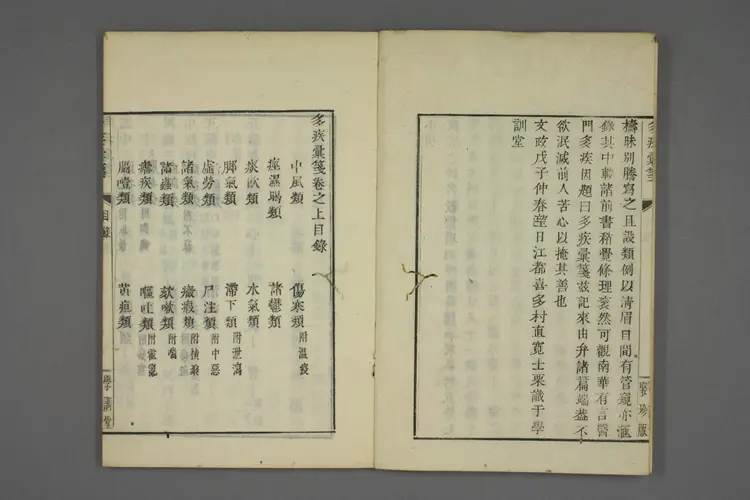 多疾彙箋
檮昧別謄寫之且設類例以清眉目間有管窺亦滙
錄其中較諸前書稍覺條理粲然可觀南華有言醫
門多疾因題曰多疾彙箋玆記來由弁諸篇端葢不
欲泯滅前人苦心以掩其善也
文政戊子仲春望日江都喜多村直寛士栗識于學
訓堂
多疾彙箋卷之上目錄
中風類
傷寒類附溫疫
痙濕暍類
諸鬱類
痰飮類
水氣類
脚氣類
滯下類附泄瀉
虛勞類
尸注類附中惡
諸氣類
癥瘕類附積聚
諸蟲類
欬嗽類附喘
瘧疾類
嘔吐類附霍亂
膈噎類
黃疸類
目錄
學訓堂